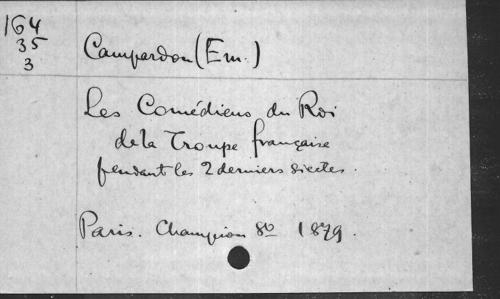 164
35
3
Campardon (Em.)
Les Comédiens du Roi
de la Troupe française
pendant les 2 derniers siecles.
Paris. Champion 8º 1879.